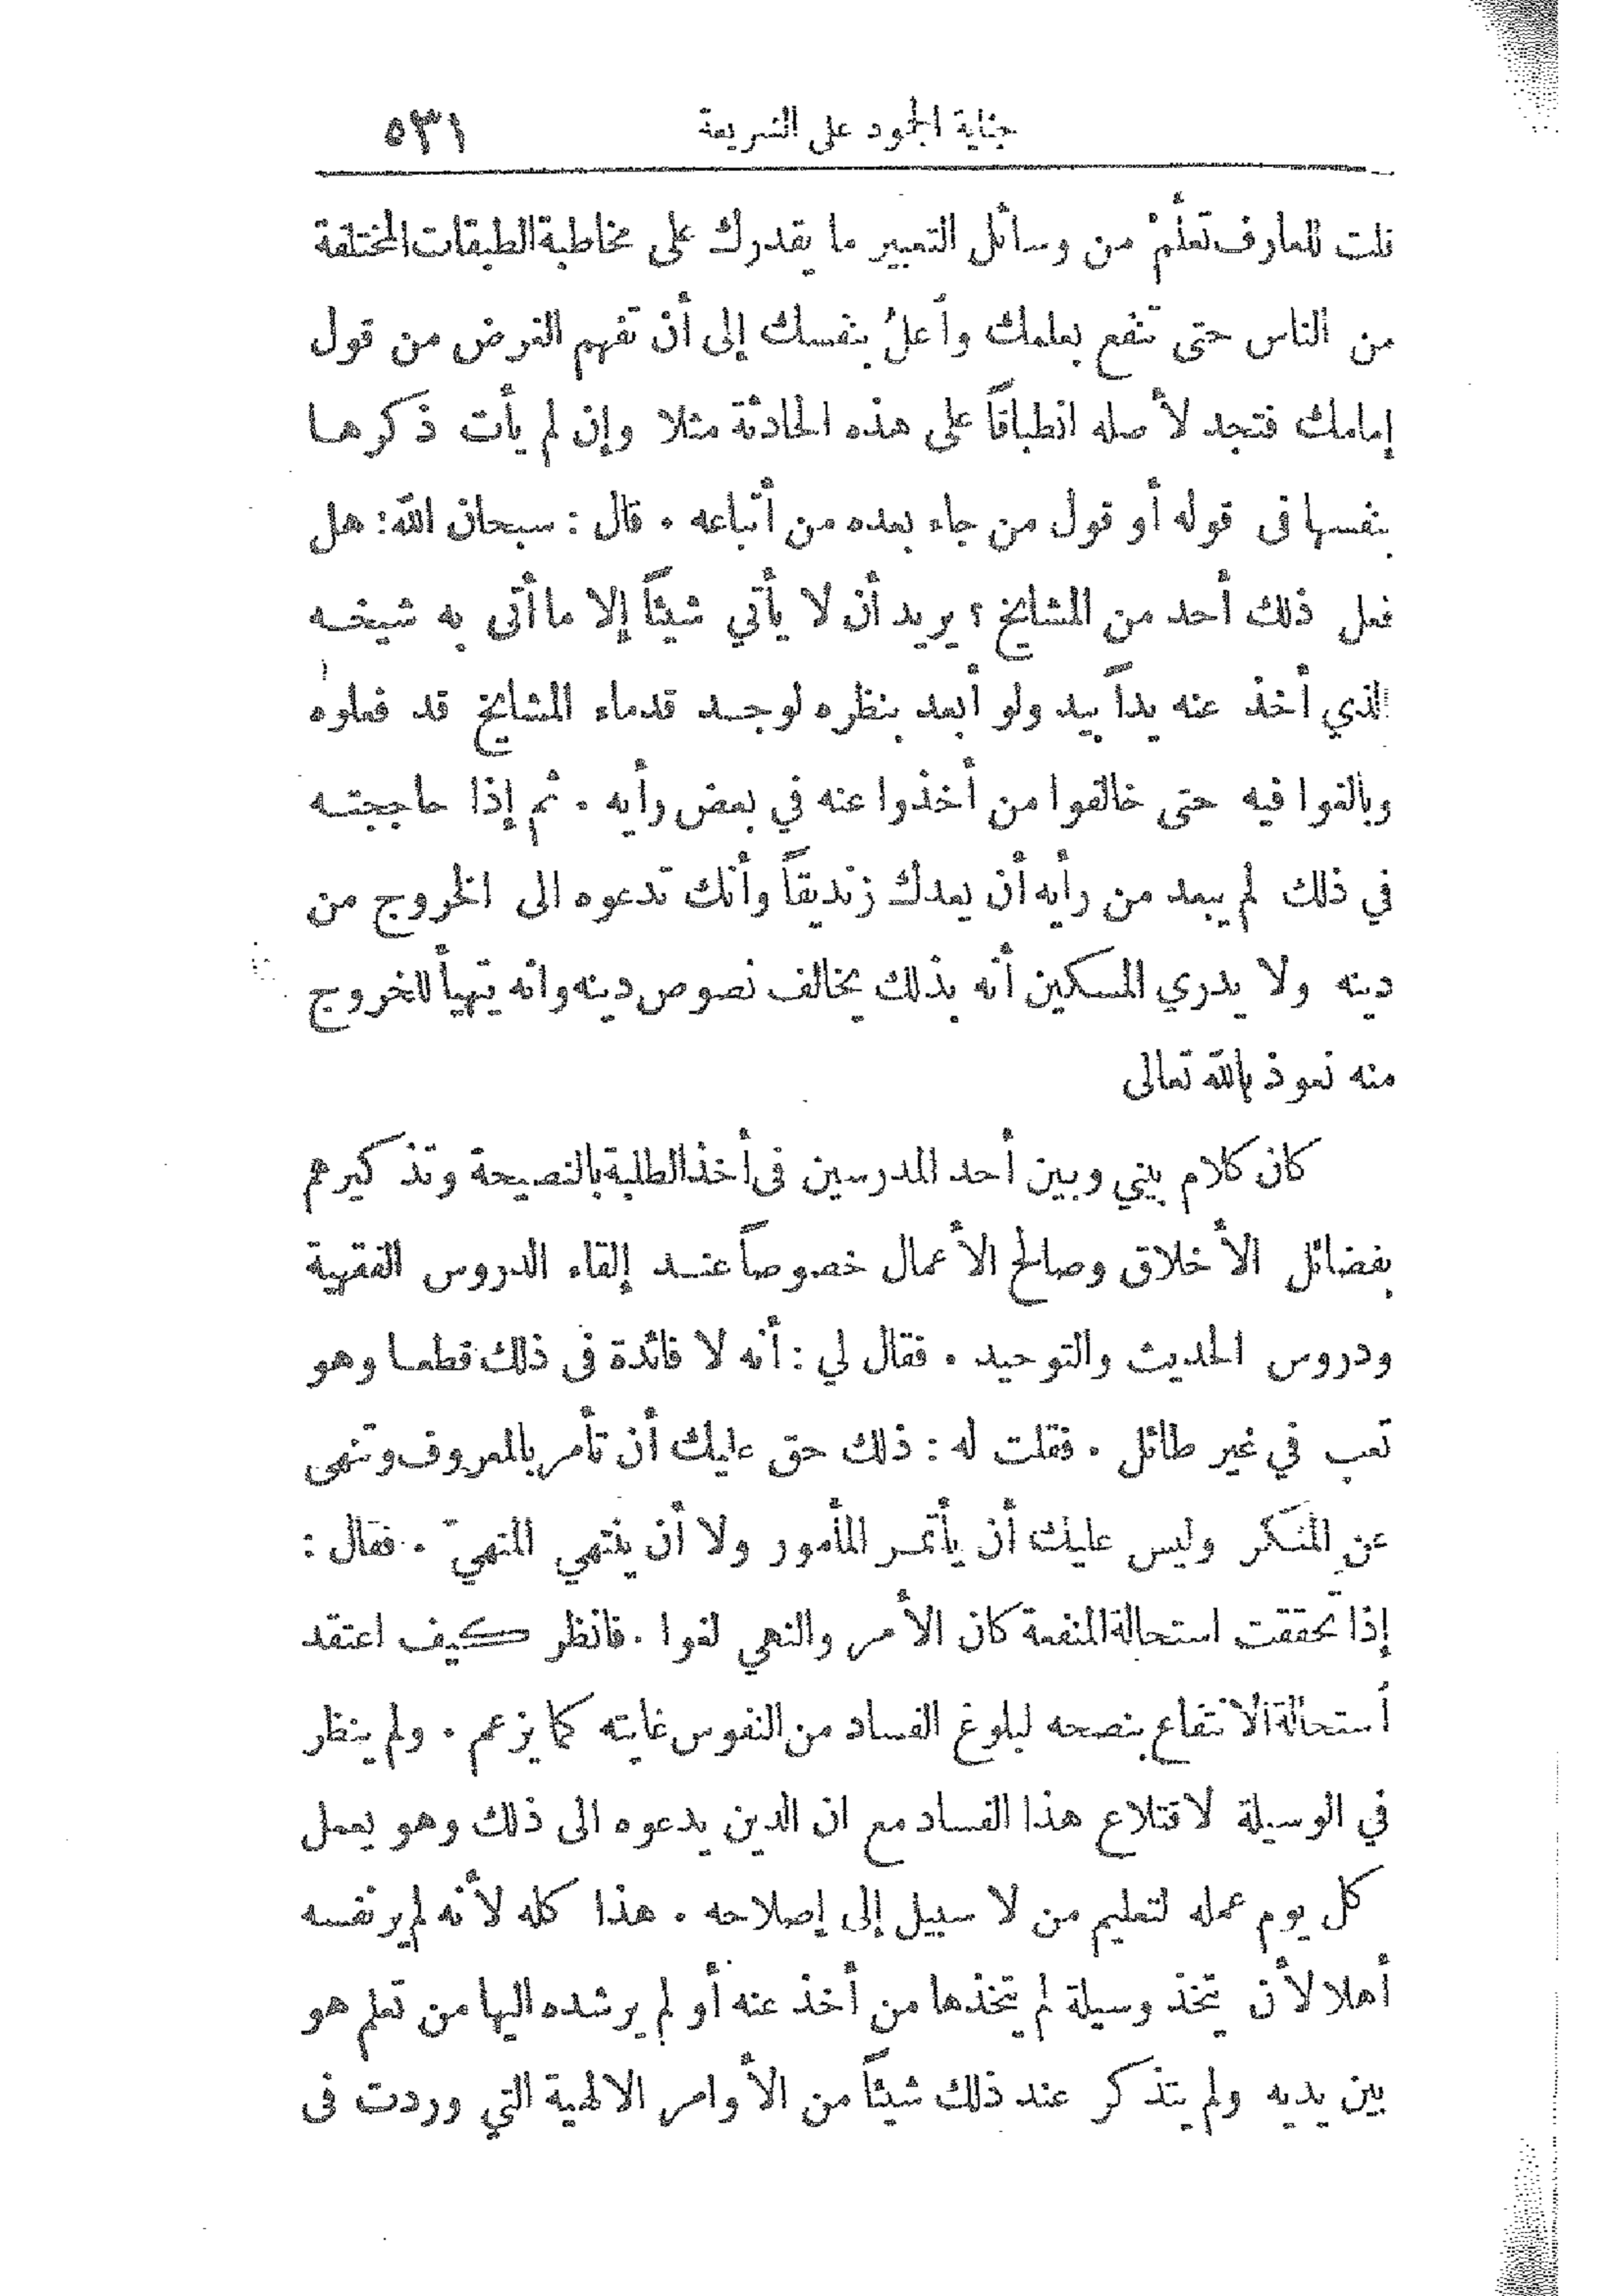 جناية الجمود على الشريعة ٥٣١
قلت للعارف تعلَّمْ من وسائل التعبير ما يقدرك على مخاطبة الطبقات المختلفة
من الناس حتى تنفع بعلمك وأعلُ بنفسك إلى أن تفهم الغرض من قول
إمامك فتجد لأصله انطباقاً على هذه الحادثة مثلا وإن لم يأت ذكرها
بنفسها فى قوله أو قول من جاء بعده من أتباعه . قال : سبحان الله: هل
فعل ذلك أحد من المشايخ ؟ يريد أن لا يأتي شيئاً إلا ما أتى به شيخه
الذي أخذ عنه يداً بيد ولو أبعد بنظره لوجد قدماء المشايخ قد فعلوه
وبالغوا فيه حتى خالفوا من أخذوا عنه في بعض رأيه . ثم إذا حاججته
في ذلك لم يبعد من رأيه أن يعدك زنديقاً وأنك تدعوه الى الخروج من
دينه ولا يدري المسكين أنه بذلك يخالف نصوص دينه وانه يتهيأ للخروج
منه نعوذ بالله تعالى
كان كلام بيني وبين أحد المدرسين فى أخذ الطلبة بالنصيحة وتذكيرهم
بفضائل الأخلاق وصالح الأعمال خصوصاً عند إلقاء الدروس الفقهية
ودروس الحديث والتوحيد . فقال لي : أنه لا فائدة فى ذلك قطعا وهو
تعب في غير طائل . فقلت له : ذلك حق عليك أن تأمر بالمعروف وتنهى
عن المنكر وليس عليك أن يأتمر المأمور ولا أن ينتهي المنهيّ . فقال :
إذا تحققت استحالة المنفعة كان الأمر والنهي لغوا . فانظر كيف اعتقد
أستحالة الانتفاع بنصحه لبلوغ الفساد من النفوس غايته كما يزعم . ولم ينظر
في الوسيلة لاقتلاع هذا الفساد مع ان الدين يدعوه الى ذلك وهو يعمل
كل يوم عمله لتعليم من لا سبيل إلى إصلاحه . هذا كله لأنه لم ير نفسه
أهلا لأن يتخذ وسيلة لم يتخذها من أخذ عنه أو لم يرشده اليها من تعلم هو
بين يديه ولم يتذكر عند ذلك شيئاً من الأوامر الالهية التي وردت فى